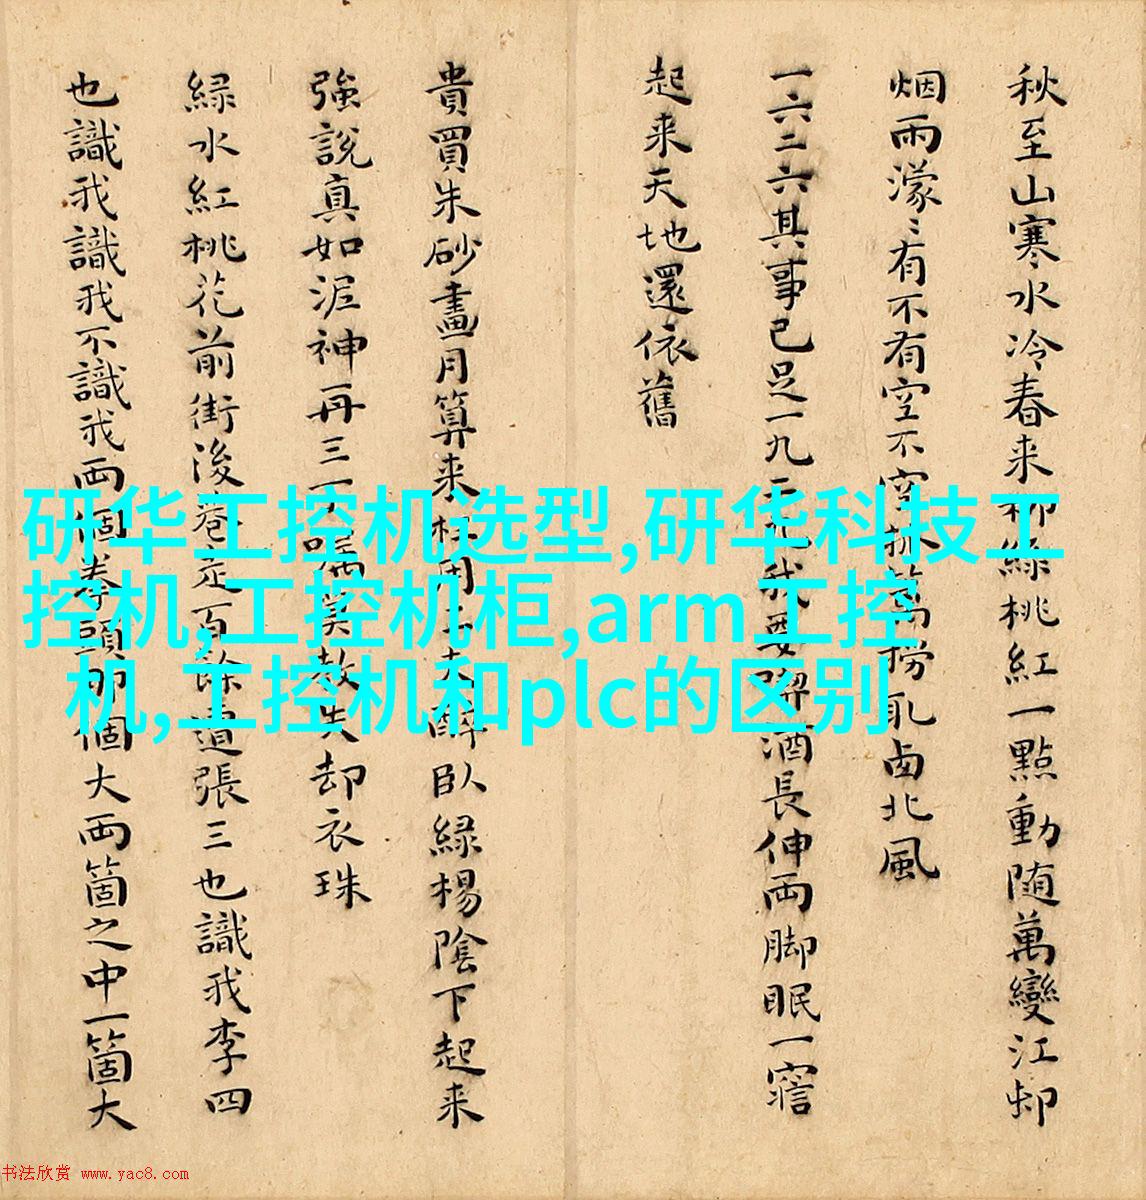 秋至山寒水冷春来柳綠桃紅一點動随萬變江邨
烟雨濛〻有不有空不空撈取西北風
一六二六其事已足一九二九我要喫酒長伸両脚眠一寤
起来天地還依舊
貴買朱砂畫月算来枉用工夫醉臥緑楊陰下起来
強說真如泥神再三叮囑莫教失却衣珠
緑水紅桃花前街後巷走百餘遭張三也識我李四
也識我識我不識我両個拳頭那個大両箇之中一箇大
研华工控机选型,研华科技工
控机,工控机柜,arm工控
机,工控机和plc的区别
书法欣赏 www.yac8.com